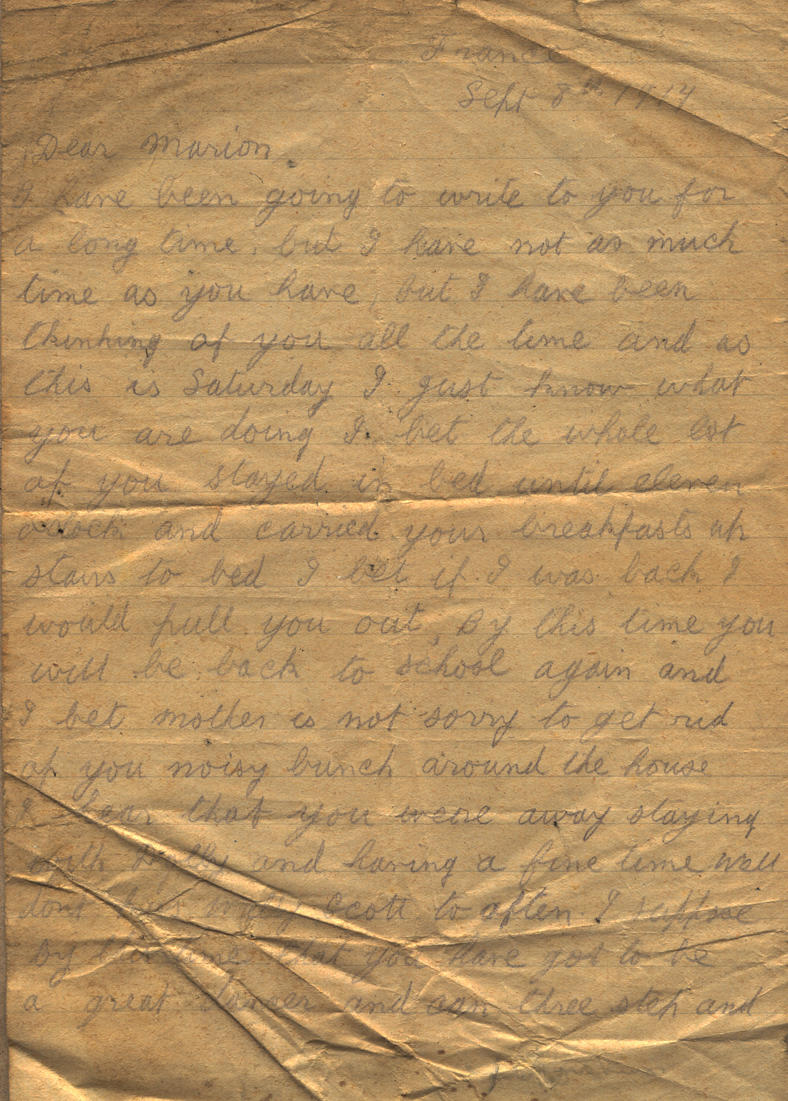 France
Sept 8th 1917
Dear Marion.
I have been going to write to you for
a long time, but I have not as much
time as you have, but I have been
thinking of you all the time and as
this is Saturday I just know what
you are doing I bet the whole lot
of you stayed in bed until eleven
oclock and carried your breakfasts up
stairs to bed I bet if I was back I
would pull you out, By this time you
will be back to school again and
I bet mother is not sorry to get rid
of you noisy bunch around the house
I hear that you were away staying
with and having a fine time well
dont Scott to often. I suppose
by time that you have got to be
a great dancer and can three step and